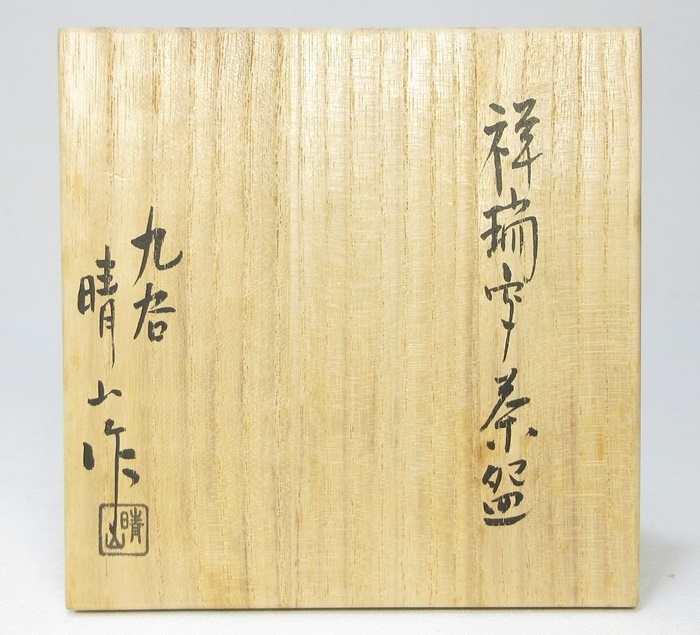 祥瑞写茶盌
九谷
晴山作
晴山